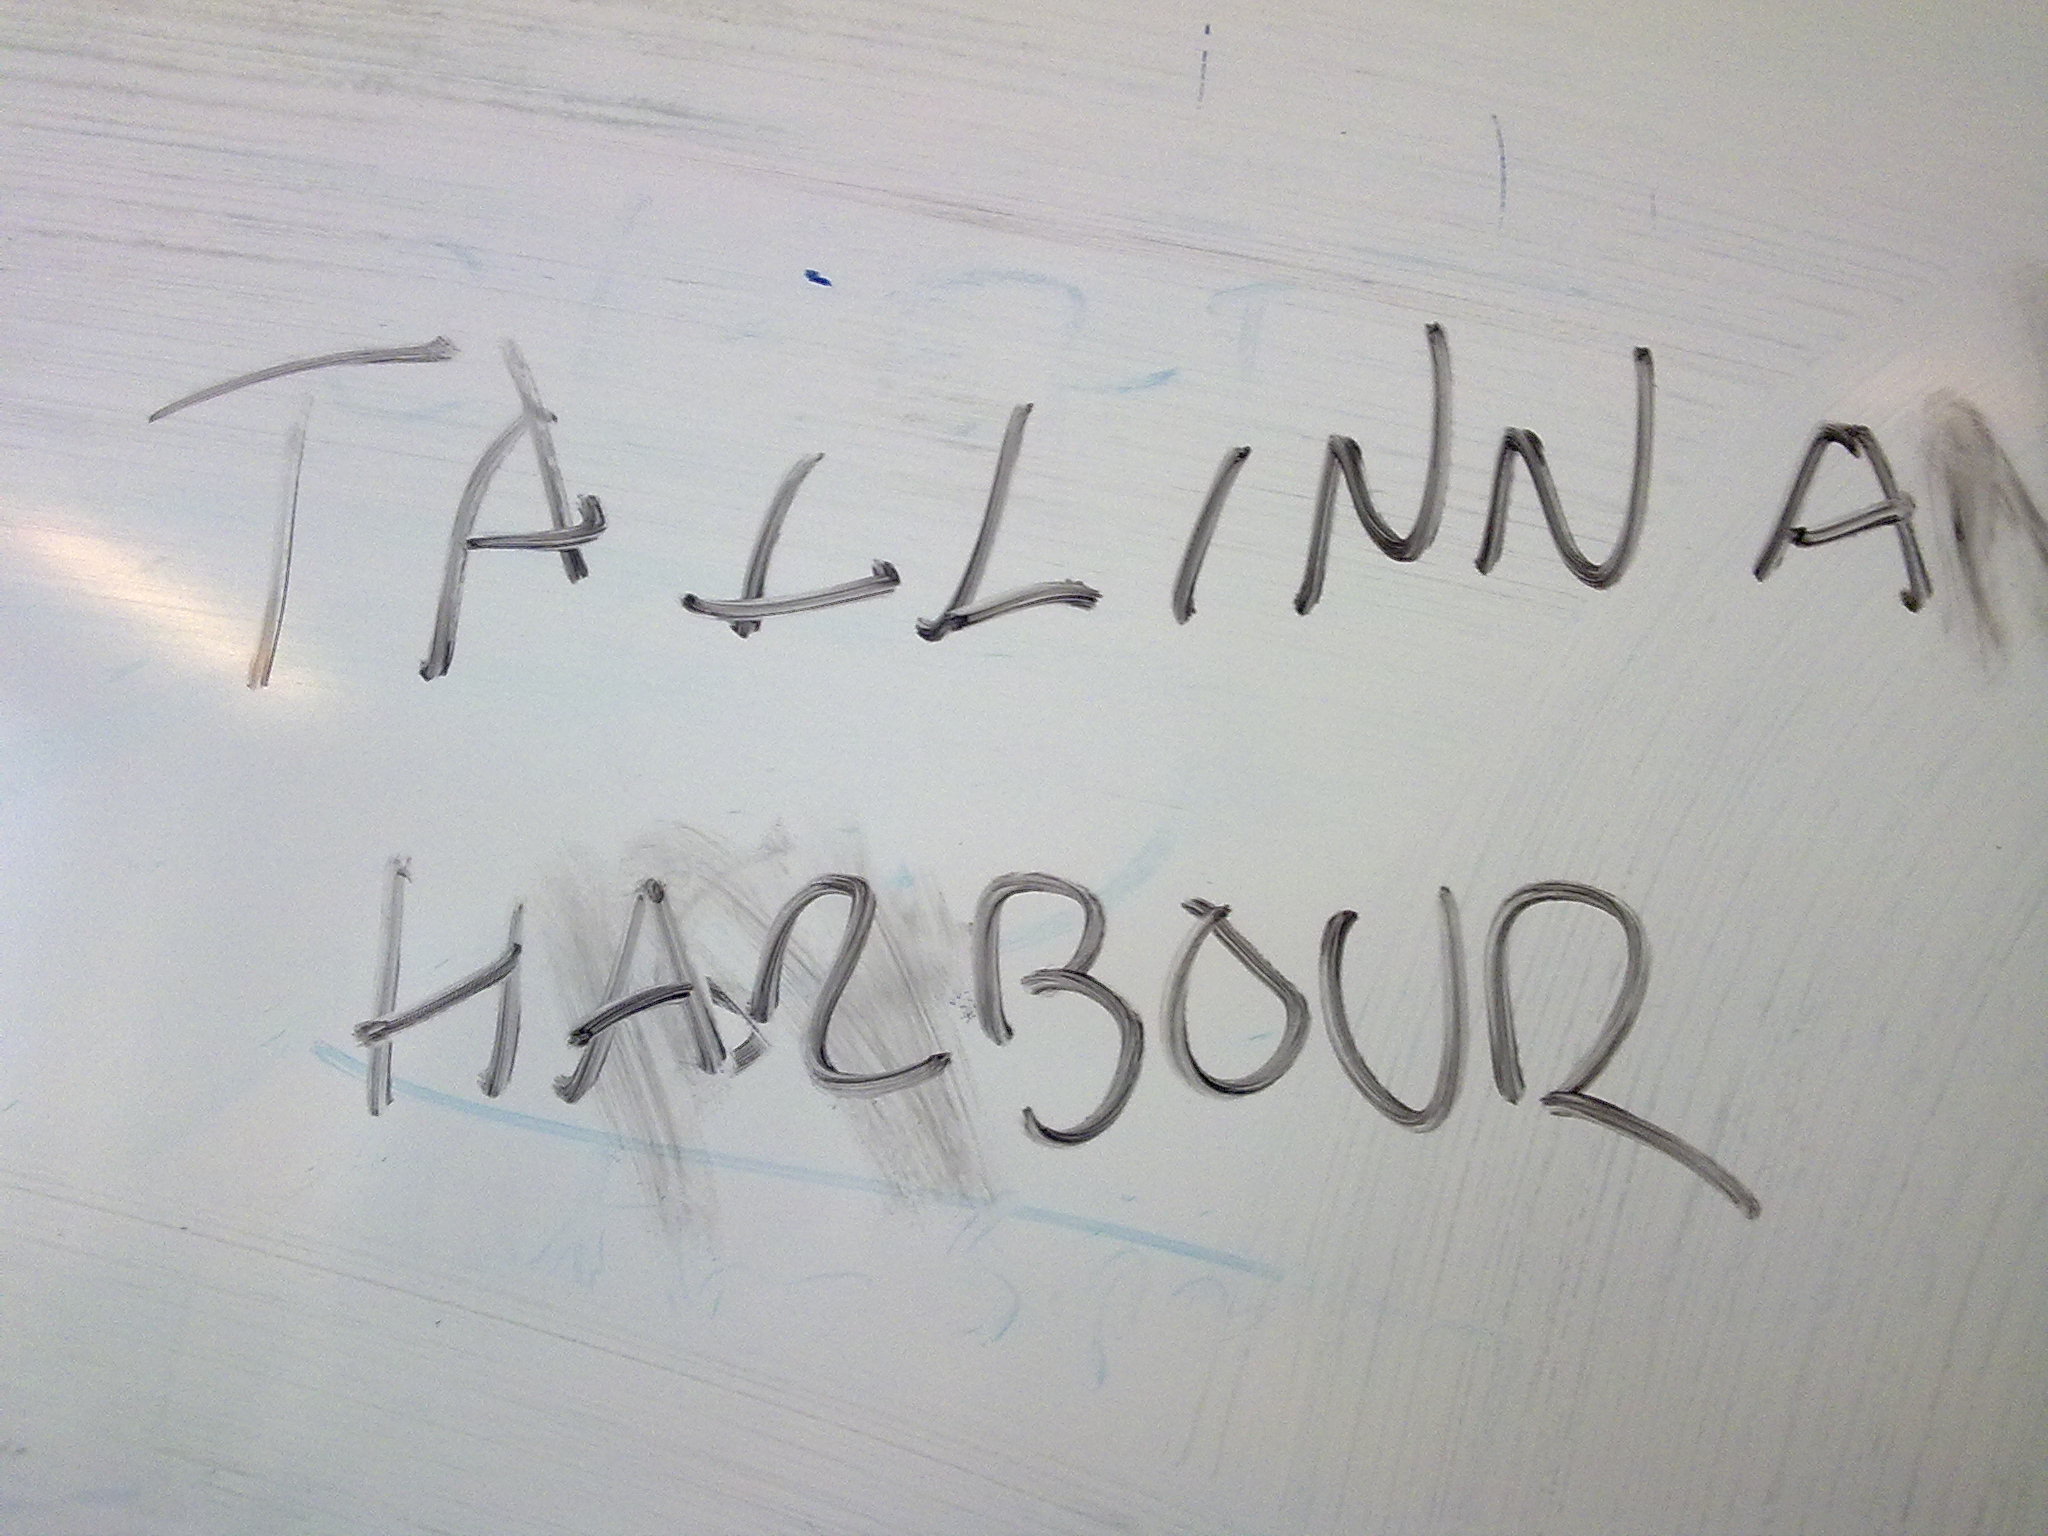 TALLINNA
HARBOUR